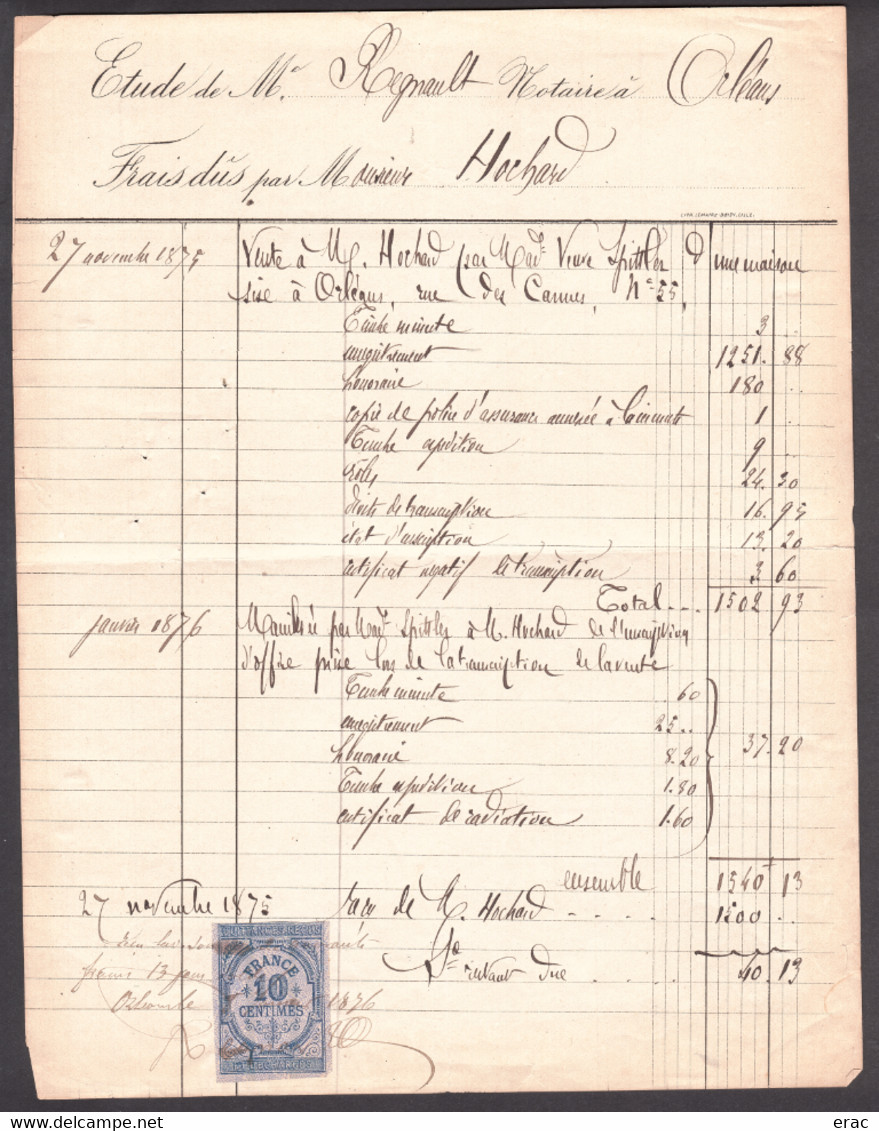 Etude de Me. Regnault Notaire à Orléans
Frais dûs par Monsieur Hochard
27 novembre 1875 Vente à M. Hochard par Made Veuve Spittler d'une maison
sise à Orléans, rue des Carmes, No 55,
Timbre minute 3
enregistrement 1251. 88
honoraire 180 ..
copie de police d'assurance annexée à la minute 1
Timbre expédition 9 .
rôles 24. 30
droits de transcription 16. 95
état d'inscription 13. 20
certificat négatif de transcription 3 60
Total... 1502 93
janvier 1876 Mainlevée par Made Spittler à M. Hochard de l'inscription
d'office prise lors de la transcription de la vente
Timbre minute 60
enregistrement 25 ..
honoraire 8.20
37.20
Timbre expédition 1.80
certificat de radiation 1.60
ensemble 1540 13
27 novembre 1875 de M. Hochard . . . . 1500 ..
restant due 40. 13
francs 13
1876
QUITTANCES REÇUS
FRANCE
10
CENTIMES
ET DÉCHARGES
erac